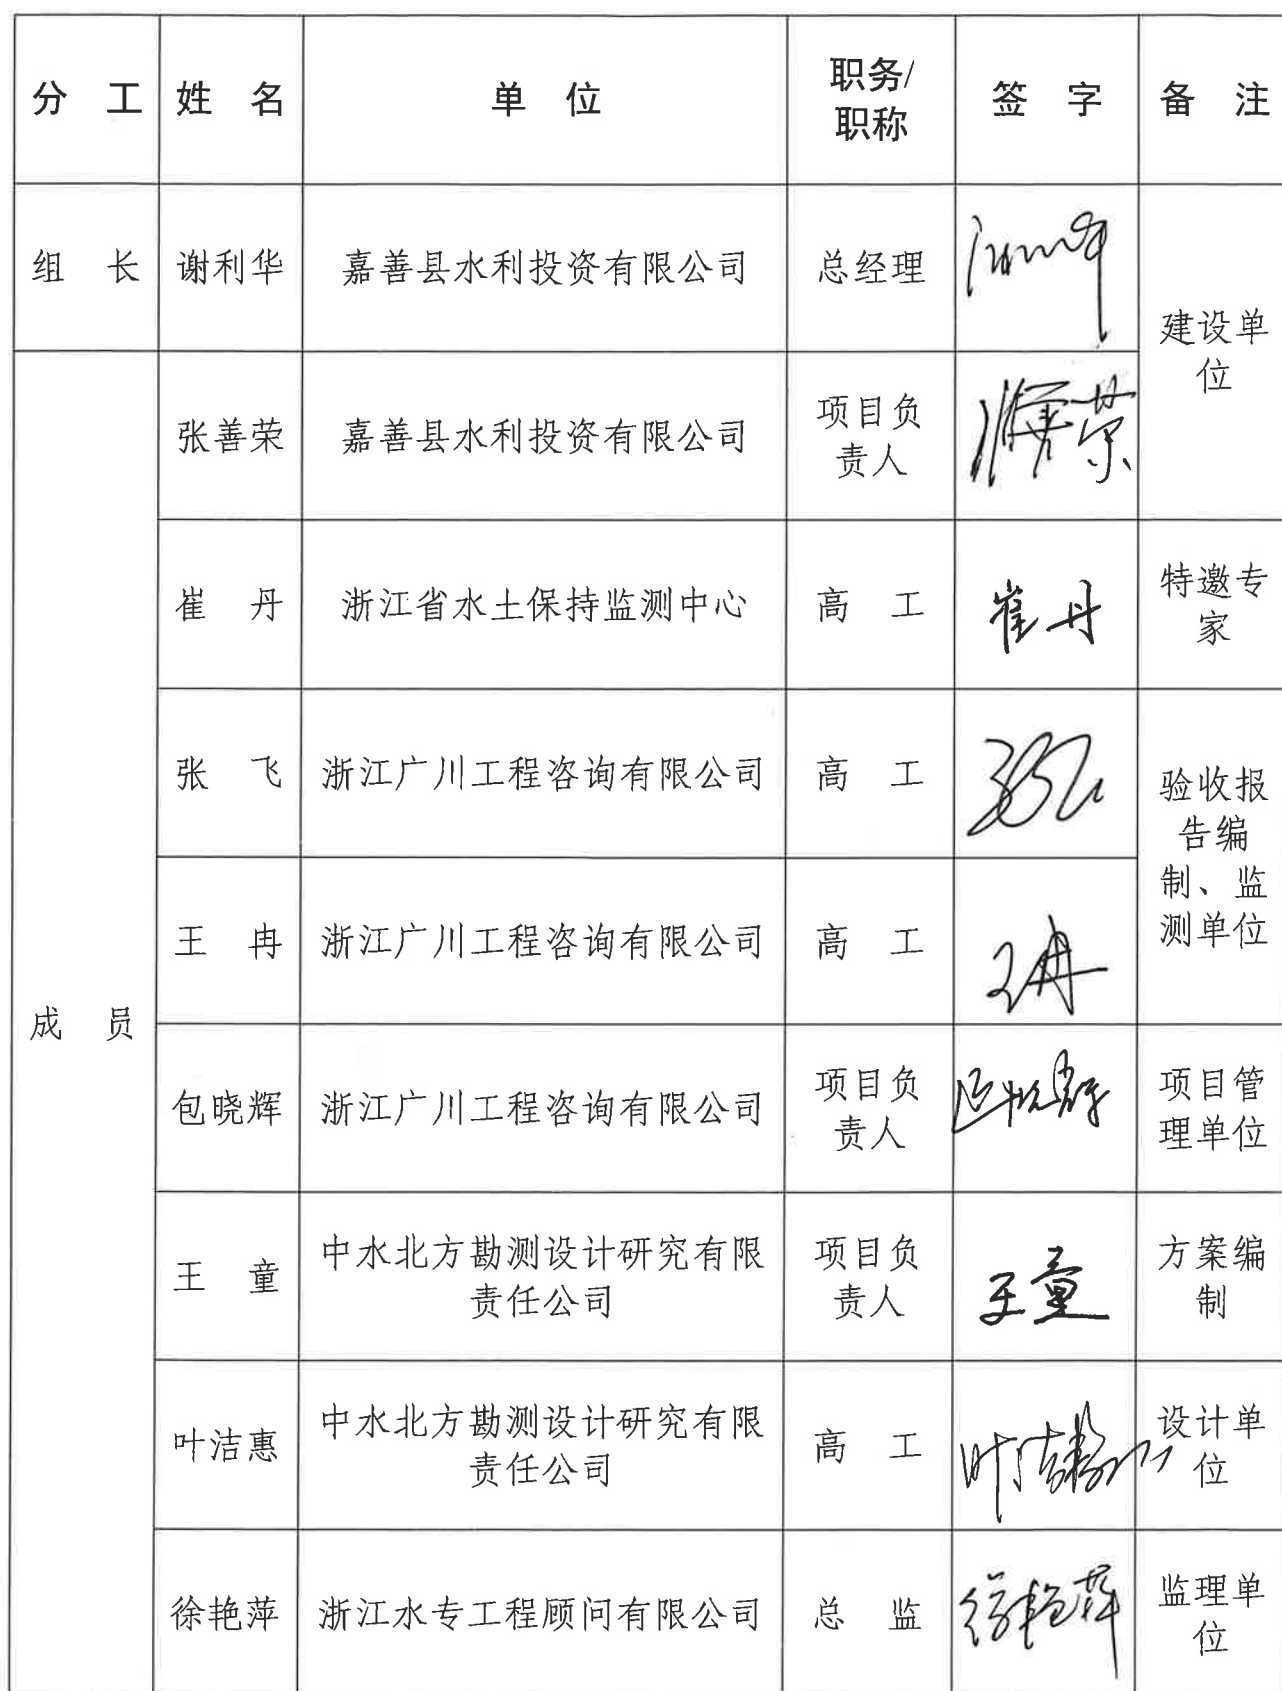 分 工 姓 名 单 位 职务/职称 签 字 备 注
组 长 谢利华 嘉善县水利投资有限公司 总经理 建设单位
成 员
张善荣 嘉善县水利投资有限公司 项目负责人 张善荣
崔 丹 浙江省水土保持监测中心 高 工 崔丹 特邀专家
张 飞 浙江广川工程咨询有限公司 高 工 验收报告编制、监测单位
王 冉 浙江广川工程咨询有限公司 高 工 王冉
包晓辉 浙江广川工程咨询有限公司 项目负责人 包晓辉 项目管理单位
王 童 中水北方勘测设计研究有限责任公司 项目负责人 王童 方案编制
叶洁惠 中水北方勘测设计研究有限责任公司 高 工 叶洁惠 设计单位
徐艳萍 浙江水专工程顾问有限公司 总 监 徐艳萍 监理单位